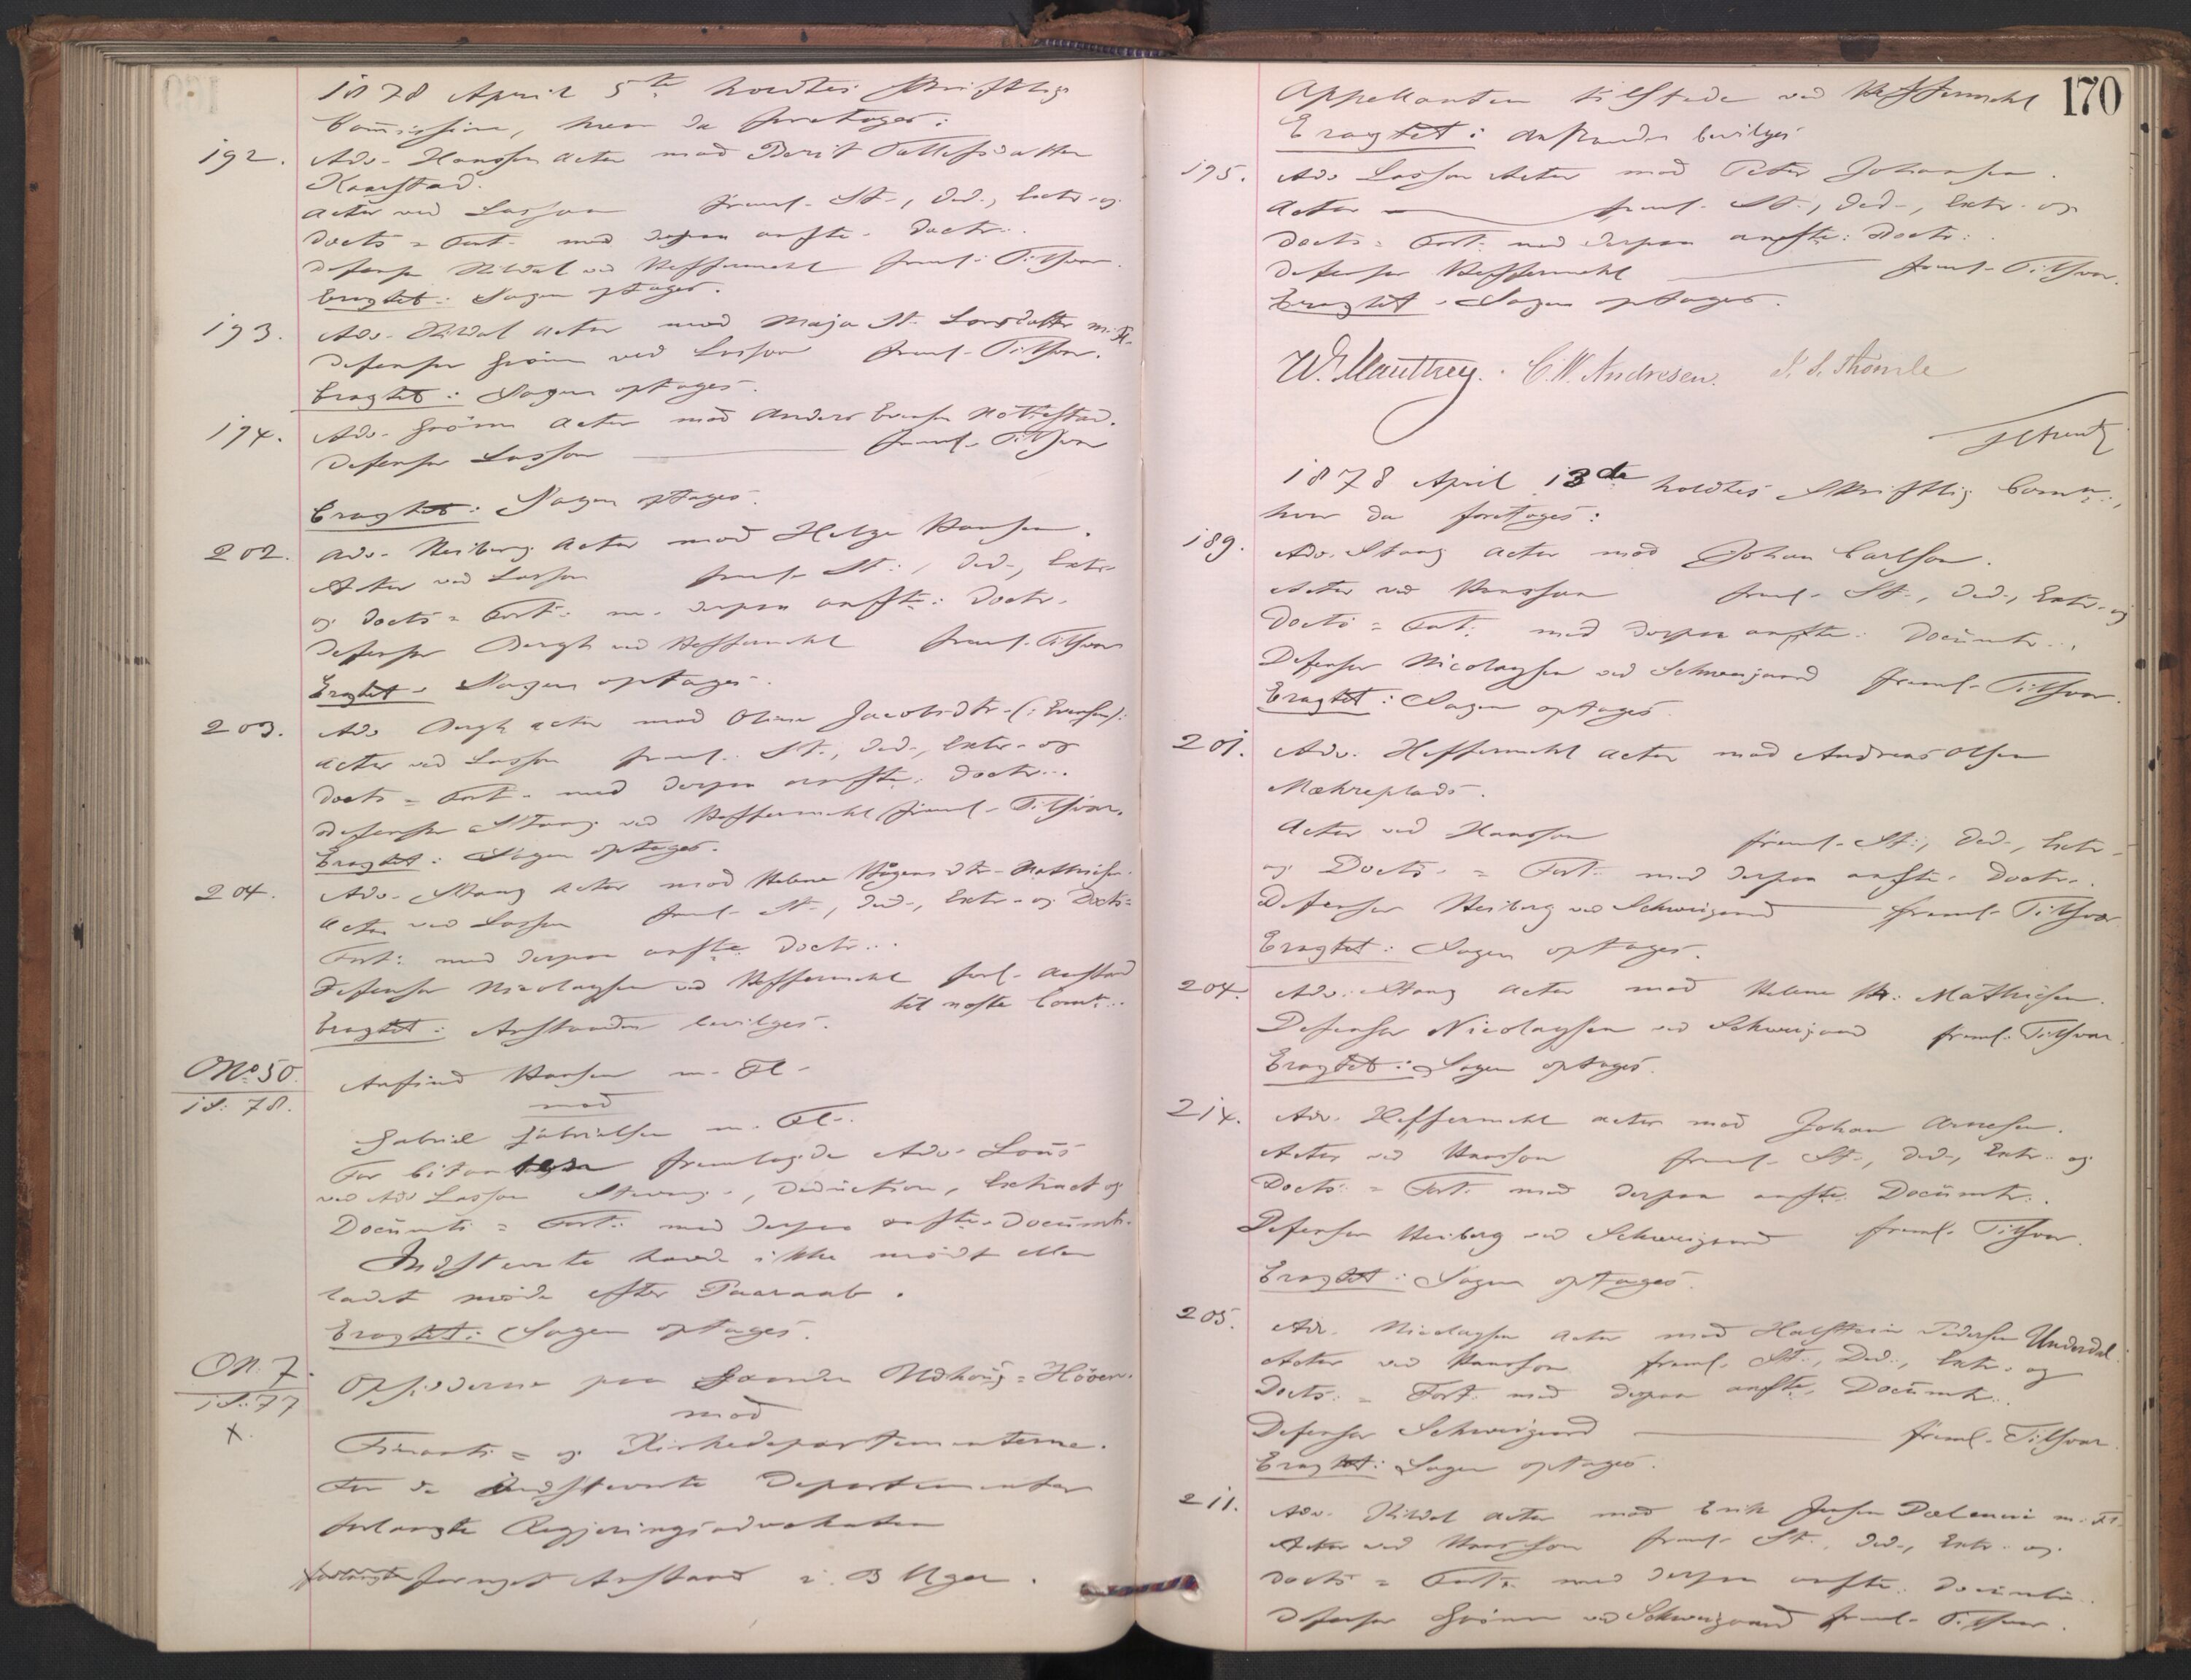 1878 April 5te holdtes Skriftlig
Commission, hvor da foretoges:
192. Adv. Hansson Actor mod Berit Tollefsdatter
Kaarstad.
Actor ved Lasson freml. St., Ded., Extr. og
Docts = Fort. med derpaa anfte. Doctr.
Defensor Kildal ved Heffermehl freml. Tilsvar.
Eragtet: Sagen optages.
193. Adv. Kildal Actor mod Maja St. Larsdatter m. Fl.
Defensor Grönn ved Lasson freml. Tilsvar.
Eragtet: Sagen optages.
194. Adv. Grönn Actor mod Anders Evensen Nöttestad.
Defensor Lasson freml. Tilsvar
Eragtet: Sagen optages.
202. Adv. Heiberg Actor mod Helge Hansen.
Actor ved Lasson freml. St., Ded., Extr.
og Docts = Fort. m. derpaa anfte: Doctr.
Defensor Bergh ved Heffermehl freml. Tilsvar
Eragtet: Sagen optages.
203. Adv. Bergh Actor mod Oline Jacobsdtr. (: Evensen):
Actor ved Lasson freml. St., Ded., Extr. og
Docts = Fort. med derpaa anfte: Doctr.
Defensor Stang ved Heffermehl freml. Tilsvar.
Eragtet: Sagen optages.
204. Adv. Stang Actor mod Helene Hågensdtr. Mathiesen.
Actor ved Lasson freml. St., Ded., Extr. og Docts =
Fort: med derpaa anfte Doctr.
Defensor Nicolaysen ved Heffermehl forl. Anstand
til næste Comn.
Eragtet: Anstanden bevilges.
No 50 / i S: 78. Anfind Hansen m. Fl.
mod
Gabriel Gabrielsen m. Fl.
For Citanterne fremlagde Adv. Lous
ved Adv Lasson Stevning, Deduction, Extract og
Documts = Fort: med derpaa anfte. Documtr.
Indstevnte havde ikke mödt eller
ladet möde efter Paaraab.
Eragtet: Sagen optages.
N. 7. / i S: 77 x Opsidderne paa Gaarden = Hööen.
mod
Finants = og Kirkedepartementerne.
For de Indstevnte Departementer
forlangte Regjeringsadvokaten
forlangte fornyet Anstand i 3 Uger.
170
Appellanten tilstede ved Heffermehl
Eragtet: Anstanden bevilges
195. Adv Lasson Actor mod Peter Johansen.
Actor freml. St., Ded., Extr. og
Docts = Fort: med derpaa anfte: Doctr:
Defensor Heffermehl freml. Tilsvar.
Eragtet: Sagen optages.
W. Manthey. C. W. Andresen. J. S. Thomle

1878 April 13de holdtes Skriftlig Comn.,
hvor da foretoges:
189. Adv. Stang Actor mod Johan Carlson.
Actor ved Hansson freml. St., Ded., Extr. og
Docts = Fort: med derpaa anfte: Documtr.
Defensor Nicolaysen ved Schweigaard freml. Tilsvar.
Eragtet: Sagen optages.
201. Adv. Heffermehl Actor mod Andreas Olsen
Mæhreplads.
Actor ved Hansson freml. St., Ded., Extr.
og Docts = Fort. med derpaa anfte. Doctr.
Defensor Heiberg ved Schweigaard freml. Tilsvar
Eragtet: Sagen optages.
204. Adv. Stang Actor mod Helene H: Mathiesen.
Defensor Nicolaysen ved Schweigaard freml. Tilsvar.
Eragtet: Sagen optages.
214. Adv. Heffermehl Actor mod Johan Arnesen.
Actor ved Hansson freml. St., Ded., Extr. og
Docts: = Fort. med derpaa anfte: Documtr:
Defensor Heiberg ved Schweigaard freml. Tilsvar.
Eragtet: Sagen optages.
205. Adv. Nicolaysen Actor mod Halstein Pedersen Underdal.
Actor ved Hansson freml. St., Ded., Extr. og
Docts: = Fort. med derpaa anfte. Documtr.
Defensor Schweigaard freml. Tilsvar.
Eragtet: Sagen optages.
211. Adv. Kildal Actor mod Erik Jensen m. Fl.
Actor ved Hansson freml. St., Ded., Extr. og
Docts = Fort. med derpaa anfte. Documtr.
Defensor Grönn ved Schweigaard freml. Tilsvar.